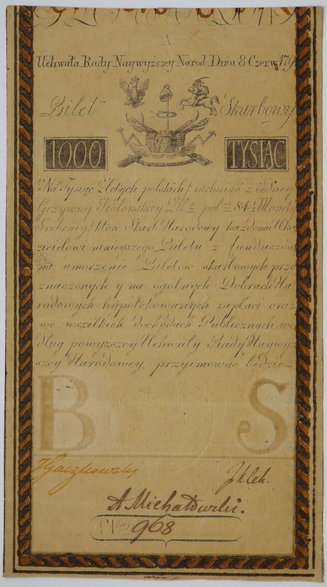 Uchwała Rady Naywyższey Narod. Dnia 8 Czerw. 179
Bilet Skarbowy
1000 TYSIĄC
Na Tysiąc Złotych polskich
Grzywny Kolońskiey pol 84½
Srebrney Skarb Narodowy każdemu
cielowi ninieyszego Biletu z funduszow
na umorzenie Biletow skarbowych prze
znaczonych y na ogolnych Dobrach Na
rodowych hypotekowanych zapłaci oraz
we wszelkich dochodach Publicznych we
dług powyższey Uchwały Rady Naywyż
szey Narodowey, przyimować będzie
B S
A Michałowski.
968